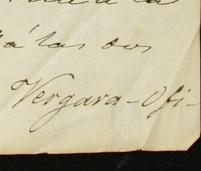 á la
á las dos
Vergara-Ofi-